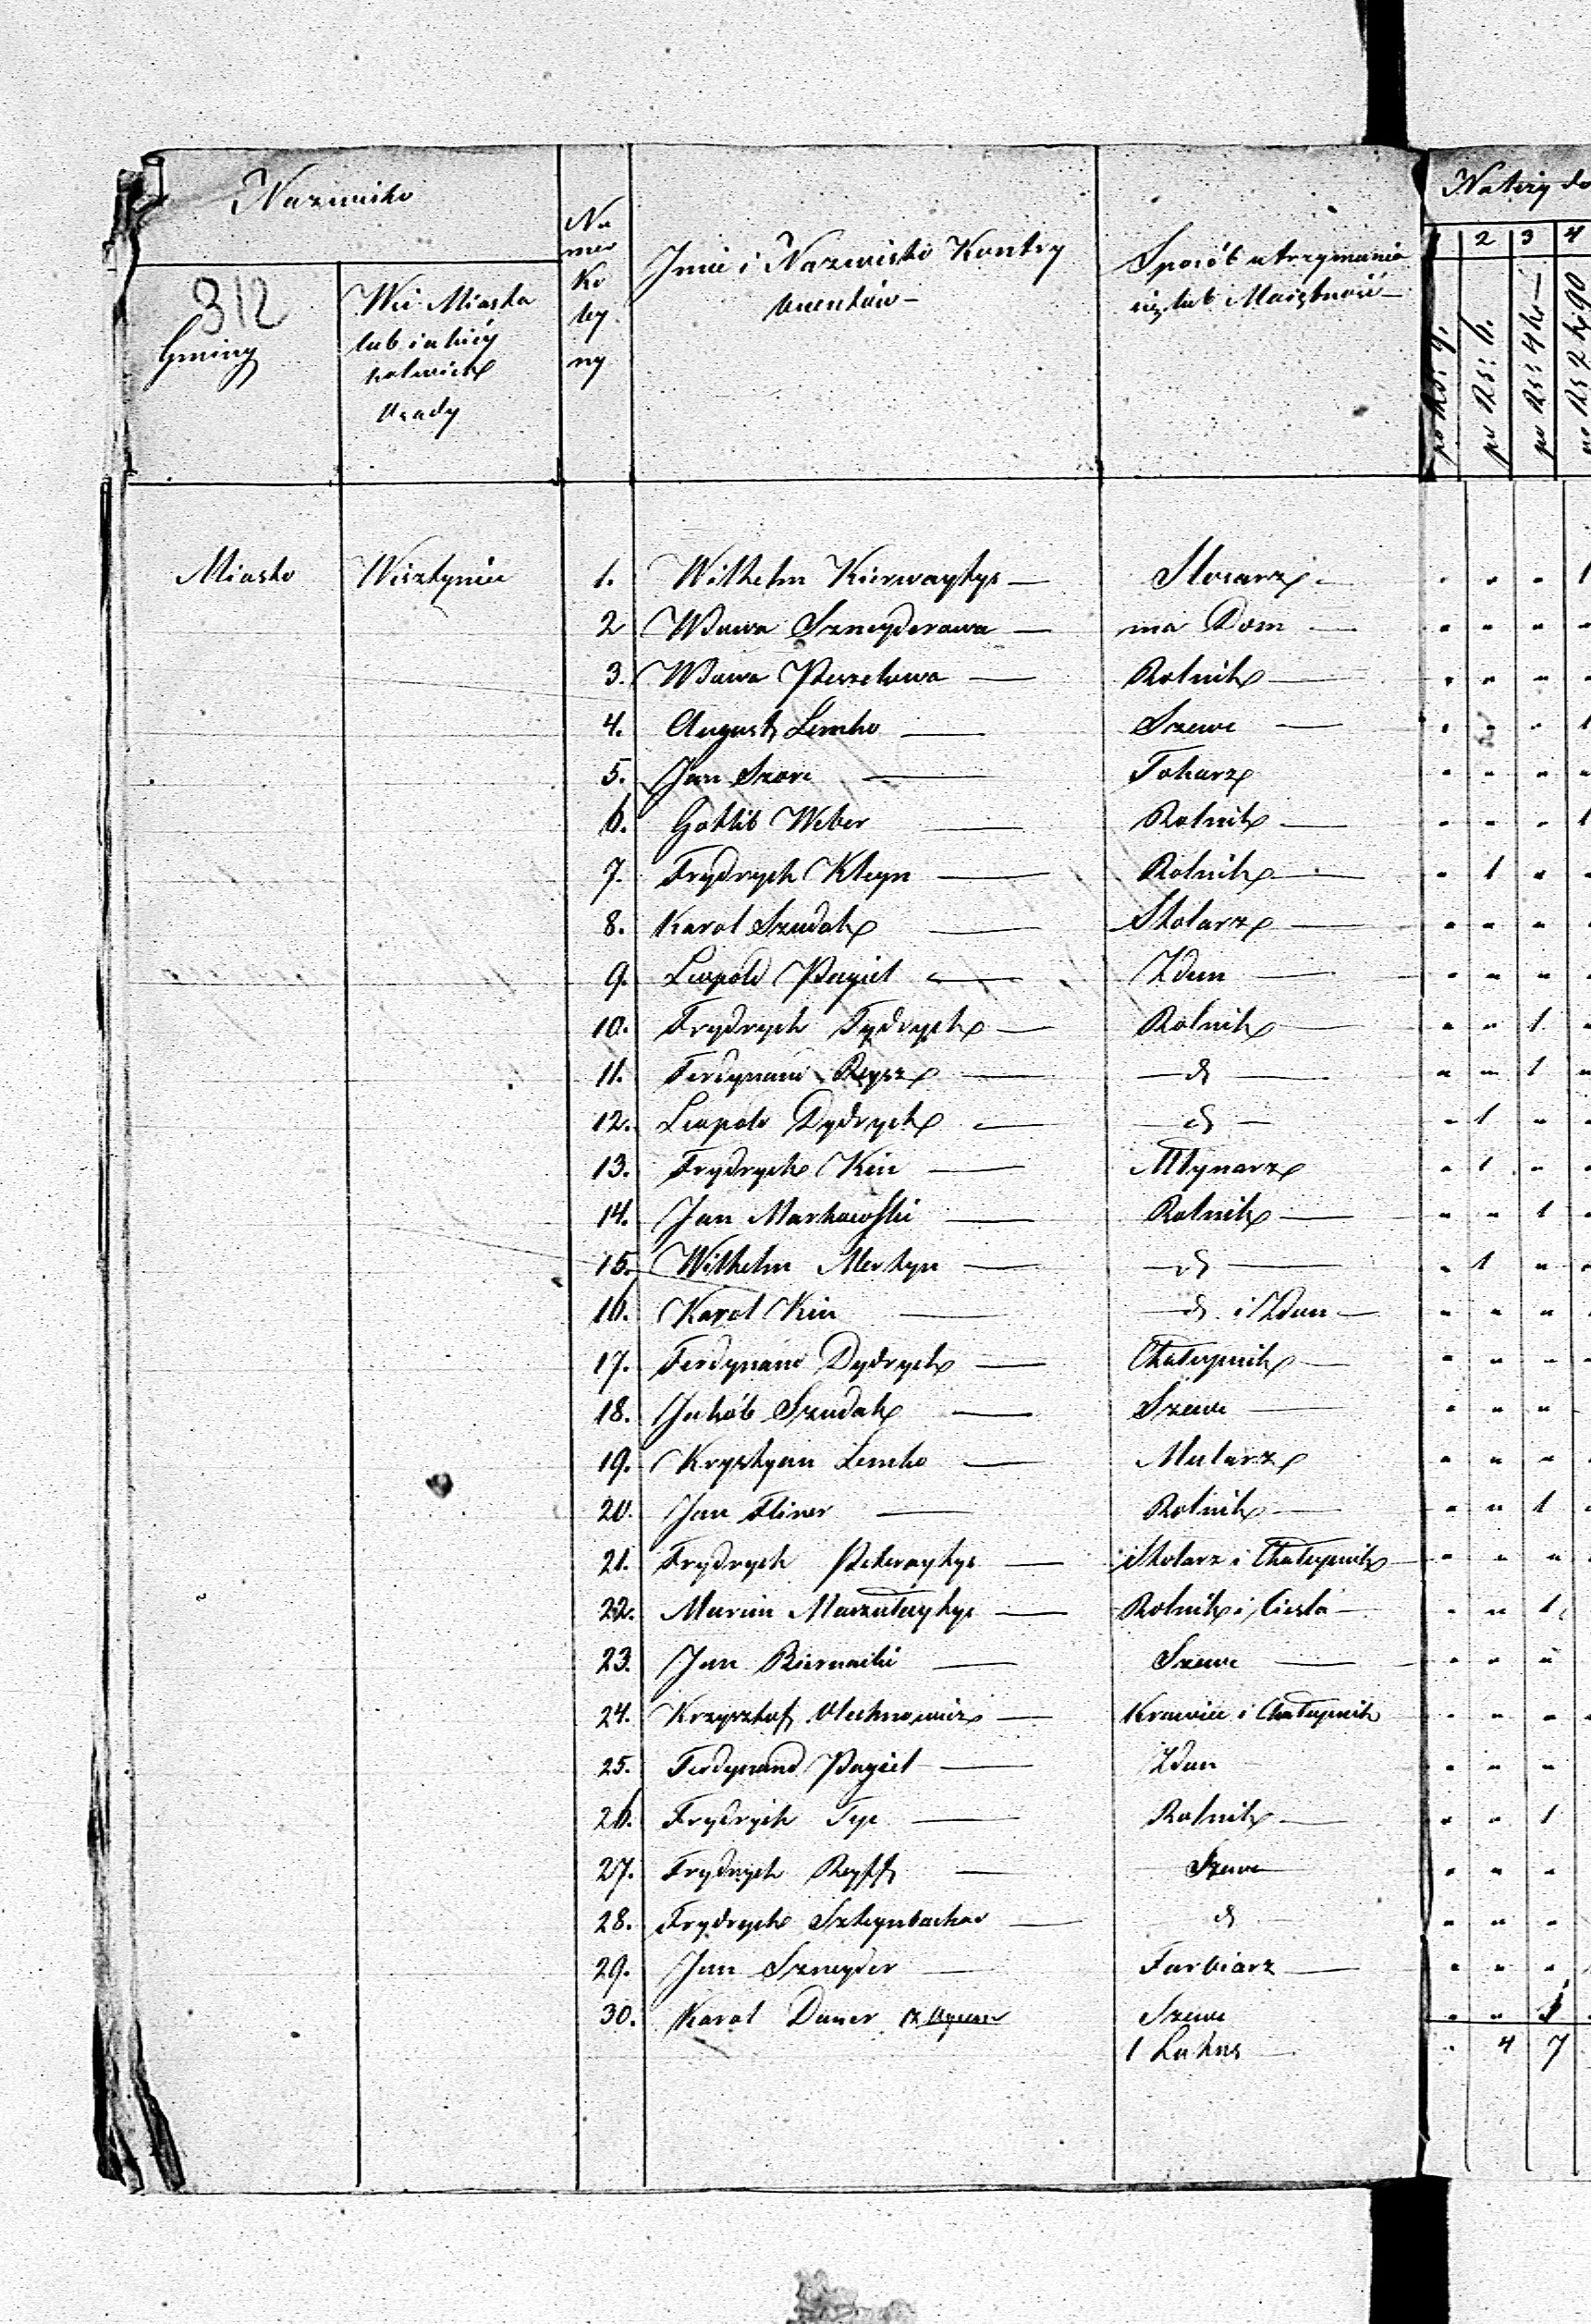 Nazwisko
312
Gminy
Wsi Miasta
lub iakiéy
kolwiek
Osady
Nu
mer
Ko
ley
ny
Jmie i Nazwisko Kontry
buentów —
Sposób utrzymania
się lub Maiętność —
Należy do
2 3 4
po RSr: 9.
po RSr: 6.
po RSr: 4 k —
po RSr 2 kp 90
Miasto Wisztyniec 1. Wilhelm Kierwaytys — Slosarz — " " " 1
2 Wdowa Szneyderowa — ma Dom — " " " "
3. Wdowa Peszelowa — Rolnik — " " " "
4. August Lemke — Szewc — " " " 1
5. Jan Szorc — Tokarz " " " "
6. Gotlib Weber — Rolnik — " " " 1
7. Frydrych Kleyn — Rolnik — " 1 " "
8. Karol Szudak — Stolarz — " " " "
9. Leopold Pagiel — Zdun — " " " "
10. Frydrych Tydrych — Rolnik — " " 1 "
11. Ferdynand Reysz — — d — " " 1 "
12. Leopold Dydrych — — d — " 1 " "
13. Frydrych Kin — Młynarz " 1 " "
14. Jan Markowski — Rolnik — " " 1 "
15. Wilhelm Mertyn — — d — " 1 " "
16. Karol Kin — — d. i Zdun — " " " "
17. Ferdynand Dydrych — Chałupnik — " " " "
18. Jakób Szudak — Szewc — " " "
19. Krystyan Lemke — Mularz " " " "
20. Jan Fliner — Rolnik — " " 1 "
21. Frydrych Peteraytys — Stolarz i Chałupnik " " "
22. Marcin Maczulaytys — Rolnik i Cieśla — " " 1
23. Jan Biernacki — Szewc — " " "
24. Krzysztof Olechnowicz — Krawiec i Chałupnik " " " "
25. Ferdynand Pagiel — Zdun " " "
26. Frydrych Tyc — Rolnik — " " 1
27. Frydrych Reyff — Szewc " " "
28. Frydrych Szteynbacher — d " " "
29. Jan Sznegder — Farbiarz — " " "
30. Karol Duner Szewc " " 1
1 Latus — " 4 7